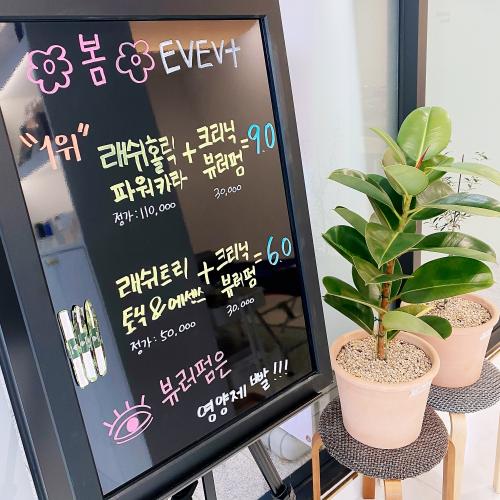 봄 EVEㅜ
"1위"
래쉬홀릭 + 크리닉 = 9.0
파워카라 뷰러펌
정가: 110,000 30,000
래쉬트리 + 크리닉 = 6.0
토닉 & 에센스 뷰러펌
정가: 50,000 30,000
뷰러펌은
영양제 빨!!!